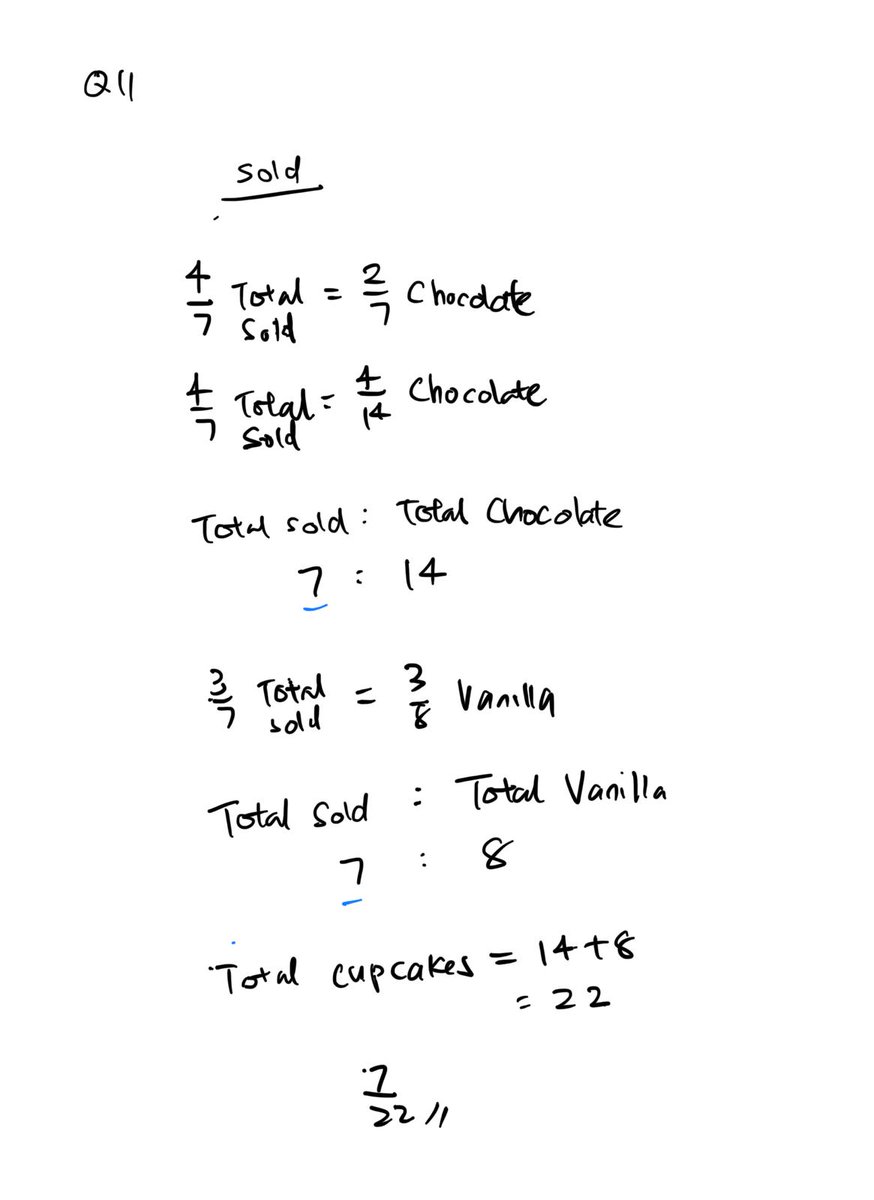 Q11
Sold
4/7 Total Sold = 2/7 Chocolate
4/7 Total Sold = 4/14 Chocolate
Total sold : Total Chocolate
7 : 14
3/7 Total sold = 3/8 Vanilla
Total Sold : Total Vanilla
7 : 8
Total cupcakes = 14+8
= 22
7/22 //